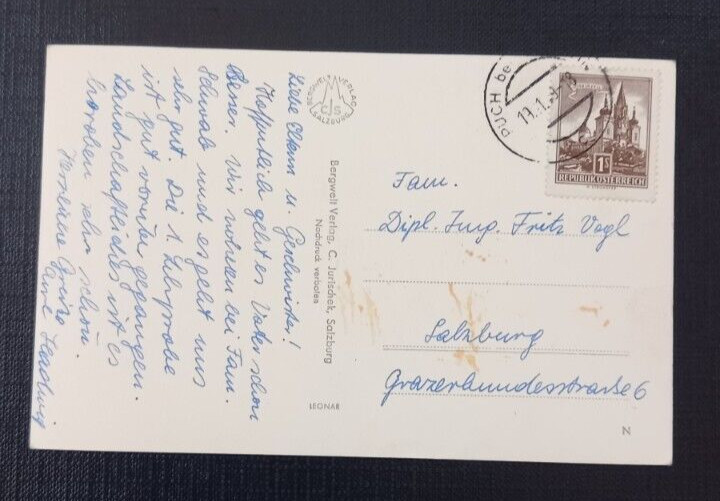 Liebe Eltern u. Geschwister!
Hoffentlich geht es Vater schon
besser. Wir wohnen bei Fam.
Schwab und es geht uns
sehr gut. Die 1. Lehrprobe
ist gut vorüber gegangen.
Landschaftlich ist es
heroben sehr schön.
Herzliche Grüße
BERGWELT VERLAG
SALZBURG
Bergwelt Verlag, C. Jurischek, Salzburg
Nachdruck verboten
LEONAR
PUCH be
MARIAZELL
1S
REPUBLIK ÖSTERREICH
Fam.
Dipl. Ing. Fritz Vogl
Salzburg
Grazerbundesstraße 6
N